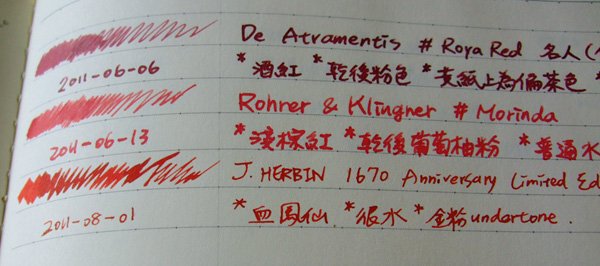 De Atramentis # Roya Red 名人(
2011-06-06
*酒紅 *乾後粉色 *黃紙上為偏茶色 *
Rohrer & Klingner # Morinda
2011-06-13
*淺棕紅 *乾後葡萄柚粉 *普通水
J. HERBIN 1670 Anniversary Limited Ed
2011-08-01
*血鳳仙 *很水 *金粉undertone.